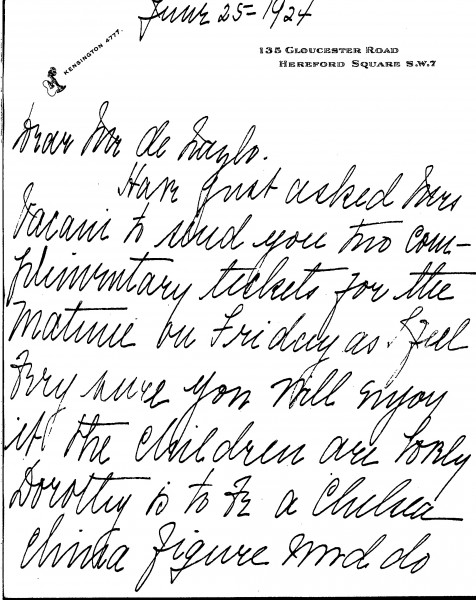 June 25 - 1924
KENSINGTON 4777.
135 GLOUCESTER ROAD
HEREFORD SQUARE S.W.7
Dear Mr de
Have just asked Miss
Vacani to send you two com-
plimentary tickets for the
Matinee on Friday as I feel
very sure you will enjoy
it. The children are lovely
Dorothy is to be a Chelsea
china figure and do